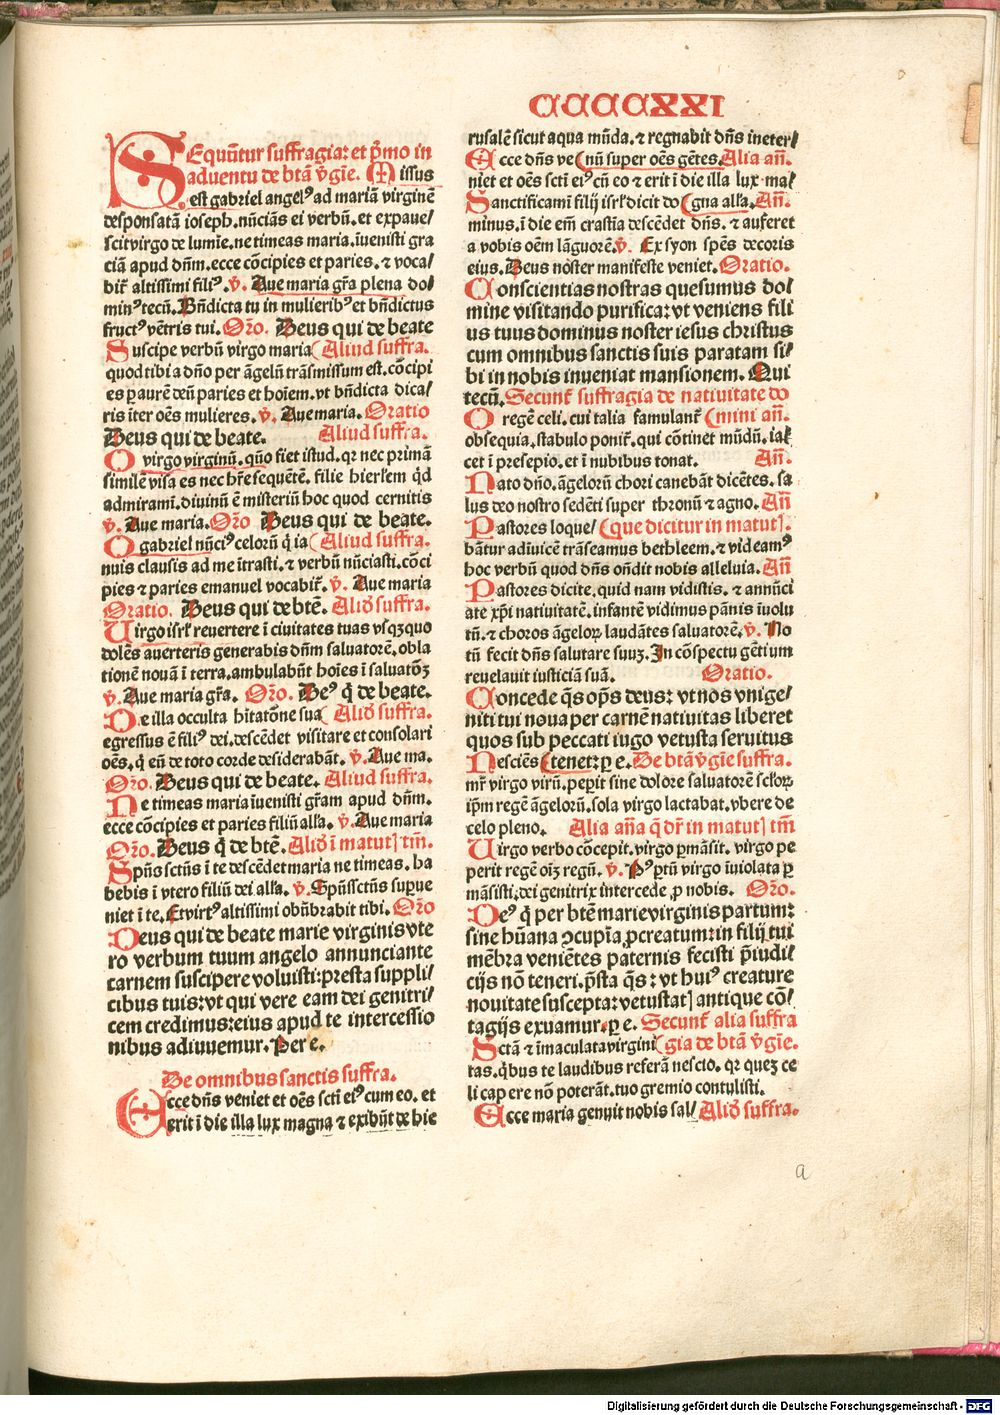 CCCCXXI
Sequūtur suffragia: et p̄mo in
aduentu de btā v̄gīe. Missus
est gabriel angelꝰ ad mariā virginē
desponsatā ioseph. nūciās ei verbū. et expaue/
scit virgo de lumīe. ne timeas maria. īuenisti gra
ciā apud dn̄m. ecce cōcipies et paries. ⁊ voca/
bit̄ altissimi filiꝰ. v̄. Aue maria gr̄a plena do/
minꝰ tecū. Bn̄dicta tu in mulieribꝰ et bn̄dictus
fructꝰ vētris tui. Oro. Deus qui de beate
Suscipe verbū virgo maria (Aliud suffra.
quod tibi a dn̄o per āgelū trāsmissum est. cōcipi
es ꝑ aurē deū paries et hoīem. vt bn̄dicta dica/
ris īter oēs mulieres. v̄. Aue maria. Oratio
Deus qui de beate. Aliud suffra.
O virgo virginū. quō fiet istud. qr nec primā
similē visa es nec hr̄e sequētē. filie hierl̄em q̇d
admiramī. diuinū ē misteriū hoc quod cernitis
v̄. Aue maria. Oro Deus qui de beate.
O gabriel nūciꝰ celorū q̇ ia (Aliud suffra.
nuis clausis ad me ītrasti. ⁊ verbū nūciasti. cōci
pies ⁊ paries emanuel vocabit̄. v̄. Aue maria
Oratio. Deus qui de btē. Aliđ suffra.
Uirgo isrl̄ reuertere ī ciuitates tuas vsqꝫ quo
dolēs auerteris generabis dn̄m saluatorē. obla
tionē nouā ī terra. ambulabūt hoīes ī saluatōꝫ
v̄. Aue maria gr̄a. Oro. Deꝰ q̇ de beate.
De illa occulta hītatōne sua (Aliđ suffra.
egressus ē filiꝰ dei. descēdet visitare et consolari
oēs. q̇ eū de toto corde desiderabāt. v̄. Aue ma.
Oro. Deus qui de beate. Aliud suffra.
Ne timeas maria īuenisti gr̄am apud dn̄m.
ecce cōcipies et paries filiū all̄a. v̄. Aue maria
Oro. Deus q̇ de btē. Aliđ ī matut] tm̄.
Spūs sctūs ī te descēdet maria ne timeas. ha
bebis ī vtero filiū dei all̄a. v̄. Spūs sctūs suꝑue
niet ī te. Et virtꝰ altissimi obūbrabit tibi. Oro
Deus qui de beate marie virginis vte
ro verbum tuum angelo annunciante
carnem suscipere voluisti: presta suppli/
cibus tuis: vt qui vere eam dei genitri/
cem credimus: eius apud te intercessio
nibus adiuuemur. Per e.
De omnibus sanctis suffra.
Ecce dn̄s veniet et oēs sctī eiꝰ cum eo. et
erit ī die illa lux magna ⁊ exibūt de hie
rusalē sicut aqua mūda. ⁊ regnabit dn̄s in eter/
Ecce dn̄s ve (nū super oēs gētes. Alia an̄.
niet et oēs sctī eiꝰ cū eo ⁊ erit ī die illa lux ma/
Sanctificamī filij isrl̄ dicit do (gna all̄a. An̄.
minus. ī die em̄ crastīa descēdet dn̄s. ⁊ auferet
a vobis oēm lāguorē. v̄. Ex syon spēs decoris
eius. Deus noster manifeste veniet. Oratio.
Conscientias nostras quesumus do/
mine visitando purifica: vt veniens fili
us tuus dominus noster iesus christus
cum omnibus sanctis suis paratam si/
bi in nobis inueniat mansionem. Qui
tecū. Secunt̄ suffragia de natiuitate do
O regē celi. cui talia famulant̄ (mini an̄.
obsequia. stabulo ponit̄. qui cōtinet mūdū. ia/
cet ī presepio. et ī nubibus tonat. An̄.
Nato dn̄o. āgelorū chori canebāt dicētes. sa
lus deo nostro sedēti super thronū ⁊ agno. An̄
Pastores loque/ (que dicitur in matut].
bātur adīuicē trāseamus bethleem. ⁊ videamꝰ
hoc verbū quod dn̄s on̄dit nobis alleluia. An̄
Pastores dicite. quid nam vidistis. ⁊ annūci
ate xp̄i natiuitatē. infantē vidimus pānis īuolu
tū. ⁊ choros āgeloꝝ laudātes saluatorē. v̄. No
tū fecit dn̄s salutare suuꝫ. In cōspectu gētium
reuelauit iusticiā suā. Oratio.
Concede q̄s op̄s deus: vt nos vnige/
niti tui noua per carnē natiuitas liberet
quos sub peccati iugo vetusta seruitus
Nesciēs (tenet: ꝑ e. De btā v̄gīe suffra.
mr̄ virgo virū. peꝑit sine dolore saluatorē sclꝝ
ip̄m regē āgelorū. sola virgo lactabat. vbere de
celo pleno. Alia an̄a q̇ dr̄ in matut] tm̄
Uirgo verbo cōcepit. virgo ꝑmāsit. virgo pe
perit regē oīꝫ regū. v̄. Pꝰ ꝑtū virgo īuiolata ꝑ
māsisti. dei genitrix intercede ꝓ nobis. Oro.
Deꝰ q̇ per btē marie virginis partum:
sine hūana ꝯcupīa ꝓcreatum: in filij tui
mēbra veniētes paternis fecisti p̄iudi/
cijs nō teneri. p̄sta q̄s: vt huiꝰ creature
nouitate suscepta: vetustat] antique cō/
tagijs exuamur. ꝑ e. Secunt̄ alia suffra
Sctā ⁊ īmaculata virgini (gia de btā v̄gīe.
tas. q̇bus te laudibus referā nescio. qr queꝫ ce
li capere nō poterāt. tuo gremio contulisti.
Ecce maria genuit nobis sal/ Aliđ suffra.
a
Digitalisierung gefördert durch die Deutsche Forschungsgemeinschaft - DFG